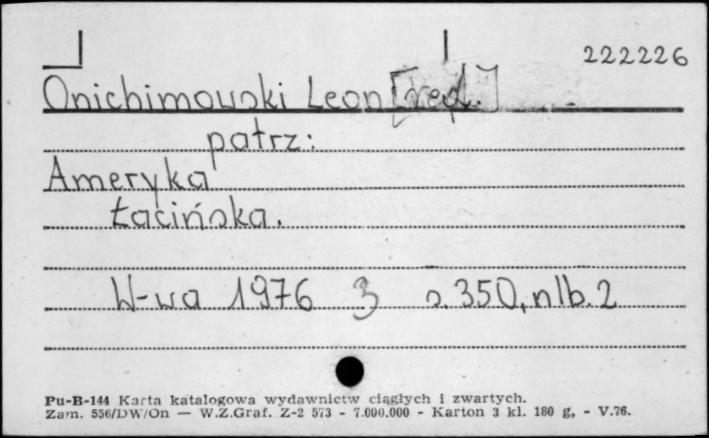 222226
Onichimowski Leon [red.]
patrz:
Ameryka
Łacińska.
W-wa 1976 3 s. 350, nlb. 2
Pu-B-144 Karta katalogowa wydawnictw ciągłych i zwartych.
Zam. 556/DW/On — W.Z.Graf. Z-2 573 - 7.000.000 - Karton 3 kl. 180 g. - V.76.